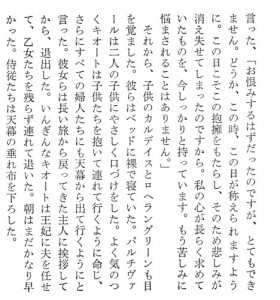 言った、「お恨みするはずだったのですが、とてもでき
ません。どうか、この時、この日が称えられますよう
に。この日こそこの抱擁をもたらし、そのため悲しみが
消え失せてしまったのですから。私の心が長らく求めて
いたものを、今しっかりと持っています。もう苦しみに
悩まされることはありません。」
それから、子供のカルデイスとロヘラングリーンも目
を覚ました。彼らはベッドに裸で寝ていた。パルチヴァ
ールは二人の子供にやさしく口づけをした。よく気のつ
くキオートは子供たちを抱いて連れて行くように命じ、
さらにすべての婦人たちにも天幕から出て行くようにと
言った。彼女らは長い旅から戻ってきた主人に挨拶して
から、退出した。いんぎんなキオートは王妃に夫を任せ
て、乙女たちを残らず連れて退いた。朝はまだかなり早
かった。侍従たちは天幕の垂れ布を下ろした。